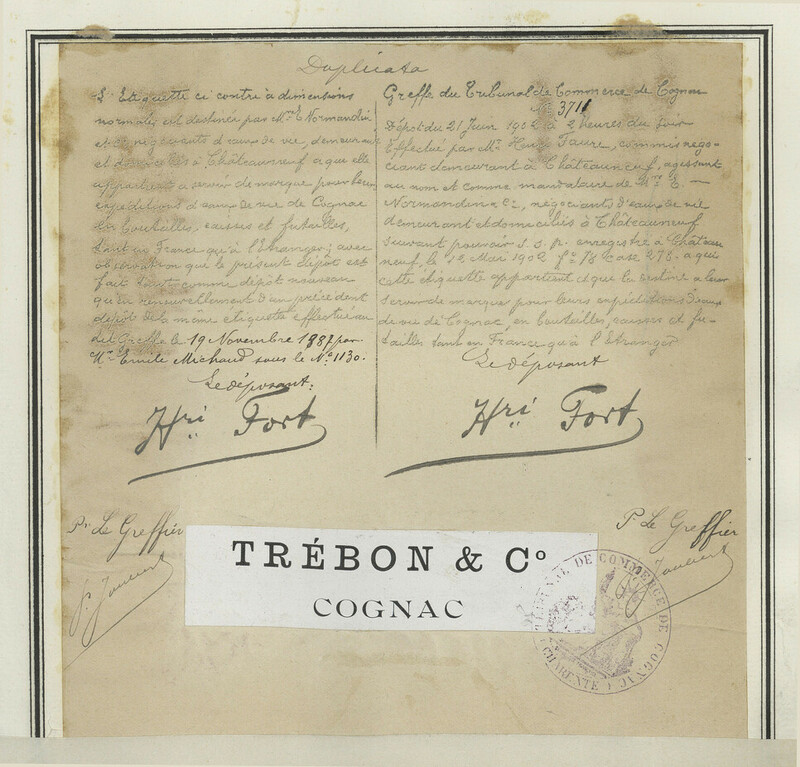 Duplicata
L'Etiquette ci contre à dimensions
normales est destinée par Mrs E Normandin
et Cie négociants d'eaux de vie, demeurant
et domiciliés à Châteauneuf à qui elle
appartient à servir de marque pour leurs
expéditions d'eaux de vie de Cognac
en bouteilles, caisses et futailles,
tant en France qu'à l'Etranger; avec
observation que le présent dépôt est
fait tant comme dépôt nouveau
qu'en renouvellement d'un précédent
dépôt de la même etiquette effectué au
dit Greffe le 19 Novembre 1887 par
Mr Emile Michaud sous le No 1130.
Le déposant:
Hri Fort
Greffe du Tribunal de Commerce de Cognac
No 3711
Dépôt du 21 Juin 1902 à 2 heures du soir
Effectué par Mr Faure, commis négo-
ciant demeurant à Châteauneuf, agissant
au nom et comme mandataire de Mrs E
Normandin & Cie, négociants d'eaux de vie
demeurant et domiciliés à Châteauneuf
suivant pouvoir s.s.p. enregistré à Château
neuf, le 12 Mai 1902 fo 78 Case 278. à qui
cette étiquette appartient et qui la destine à leur
servir de marque pour leurs expéditions d'eaux
de vie de Cognac, en bouteilles, caisses et fu-
tailles tant en France qu'à l'Etranger
Le déposant
Hri Fort
Pr Le Greffier
TRÉBON & Co
COGNAC
P. Le Greffier
TRIBUNAL DE COMMERCE DE COGNAC
CHARENTE